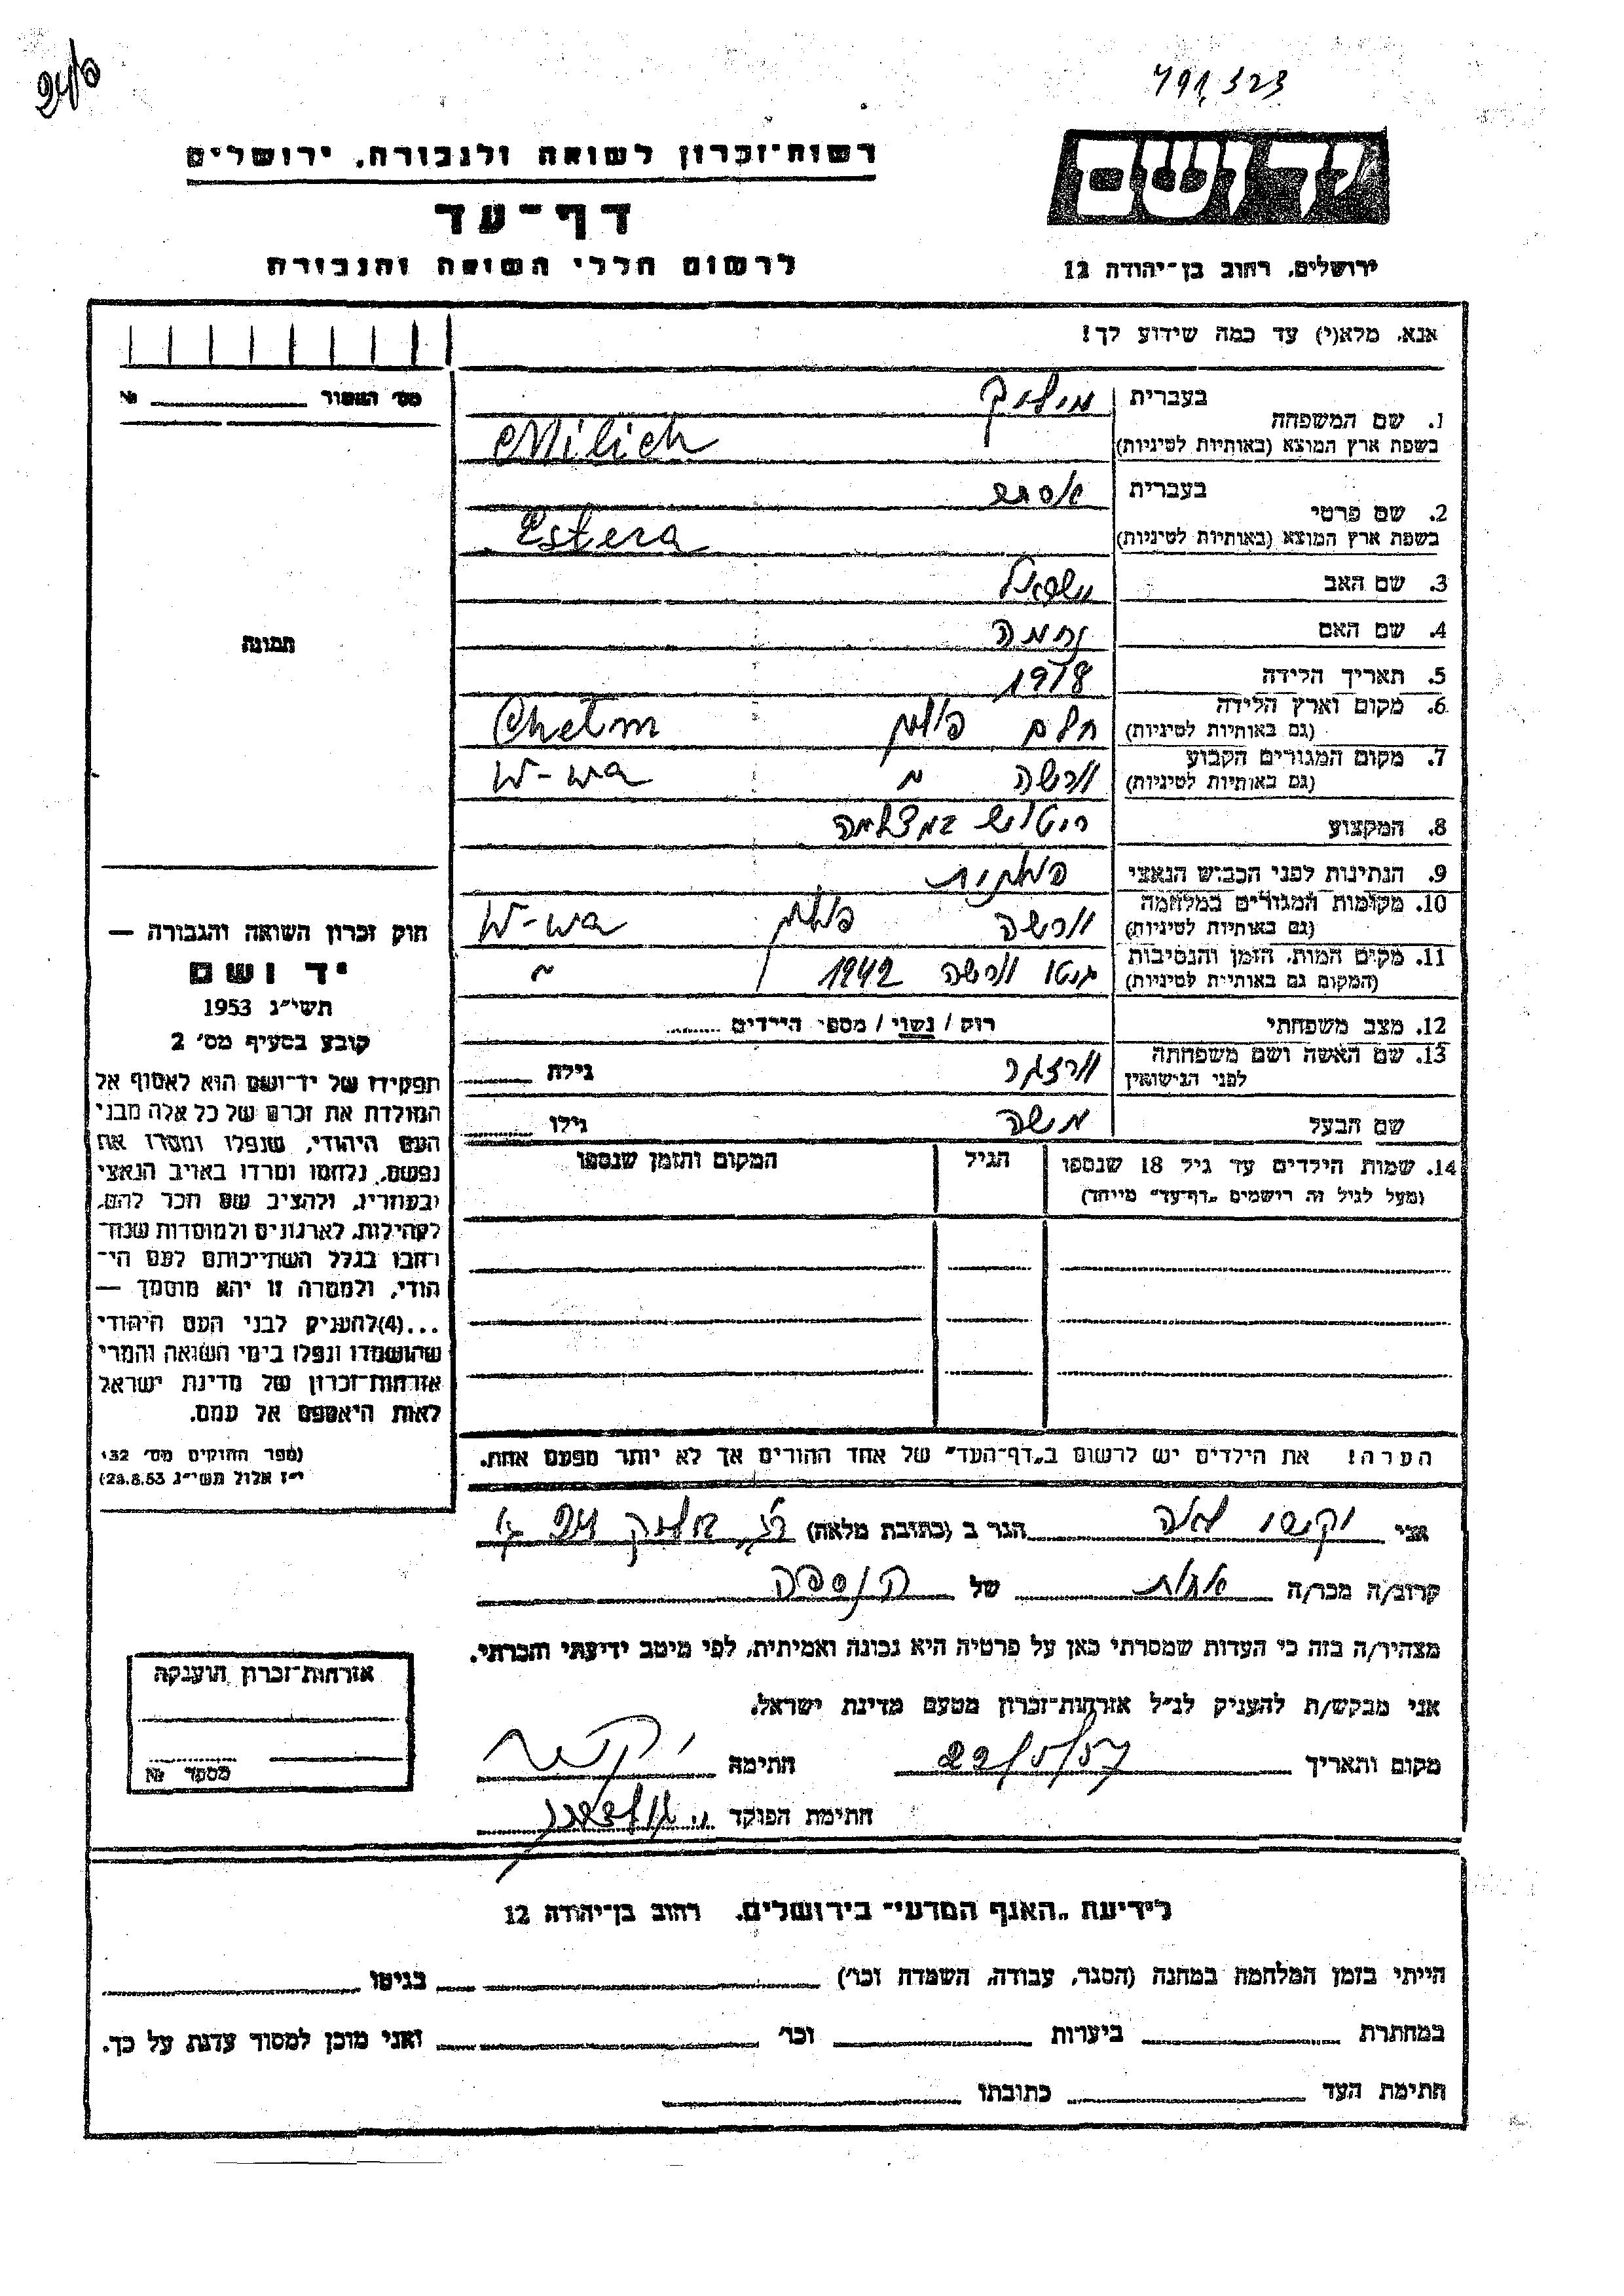 791,323
רשות-זכרון לשואה ולגבורה, ירושלים
דף-עד
לרשום חללי השואה והגבורה
ידושם
ירושלים, רחוב בן-יהודה 12
אנא, מלא(י) עד כמה שידוע לך!
מס' השמור №
1. שם המשפחה
בעברית מיליך
בשפת ארץ המוצא (באותיות לטיניות) Milich
2. שם פרטי
בעברית אסתר
בשפת ארץ המוצא (באותיות לטיניות) Estera
3. שם האב ישראל
4. שם האם נחמה
5. תאריך הלידה 1918
6. מקום וארץ הלידה חלם פולין Chełm
(גם באותיות לטיניות)
7. מקום המגורים הקבוע ורשה W-wa
(גם באותיות לטיניות)
8. המקצוע
9. הנתינות לפני הכבוש הנאצי פולנית
10. מקומות המגורים במלחמה ורשה פולין W-wa
(גם באותיות לטיניות)
11. מקום המות, הזמן והנסיבות גטו ורשה 1942
(המקום גם באותיות לטיניות)
12. מצב משפחתי רוק / נשוי / מספר הילדים
13. שם האשה ושם משפחתה
לפני הנישואין
גילה
שם הבעל משה גילו
14. שמות הילדים עד גיל 18 שנספו
(מעל לגיל זה רישמים „דף-עד" מייחד)
הגיל
המקום והזמן שנספו
הערה! את הילדים יש לרשום ב„דף-העד" של אחד ההורים אך לא יותר מפעם אחת.
תמונה
חוק זכרון השואה והגבורה —
יד ושם
תשי"ג 1953
קובע בסעיף מס' 2
תפקידו של יד-ושם הוא לאסוף אל
המולדת את זכרם של כל אלה מבני
העם היהודי, שנפלו ומסרו את
נפשם, נלחמו ומרדו באויב הנאצי
ובעוזריו, ולהציב שם וזכר להם,
לקהילות, לארגונים ולמוסדות שנח-
רחבו בגלל השתייכותם לעם הי-
הודי, ולמטרה זו יהא מוסמך —
...(4)להעניק לבני העם היהודי
שהושמדו ונפלו בימי השואה והמרי
אזרחות-זכרון של מדינת ישראל
לאות היאספם אל עמם.
(ספר החוקים מס' 132
י"ז אלול תשי"ג 28.8.53)
אני הגר ב (כתובת מלאה)
קרוב/ה מכר/ה אחות של הנספה
מצהיר/ה בזה כי העדות שמסרתי כאן על פרטיה היא נכונה ואמיתית, לפי מיטב ידיעתי והכרתי.
אני מבקש/ת להעניק לנ"ל אזרחות-זכרון מטעם מדינת ישראל.
מקום ותאריך 22/5/57 חתימה
חתימת הפוקד
אזרחות-זכרון הוענקה
מספר №
לידיעת „האגף המדעי" בירושלים, רחוב בן-יהודה 12
הייתי בזמן המלחמה במחנה (הסגר, עבודה, השמדה וכר') בגיטו
במחתרת ביערות וכר' ואני מוכן למסור עדות על כך.
חתימת העד כתובתו